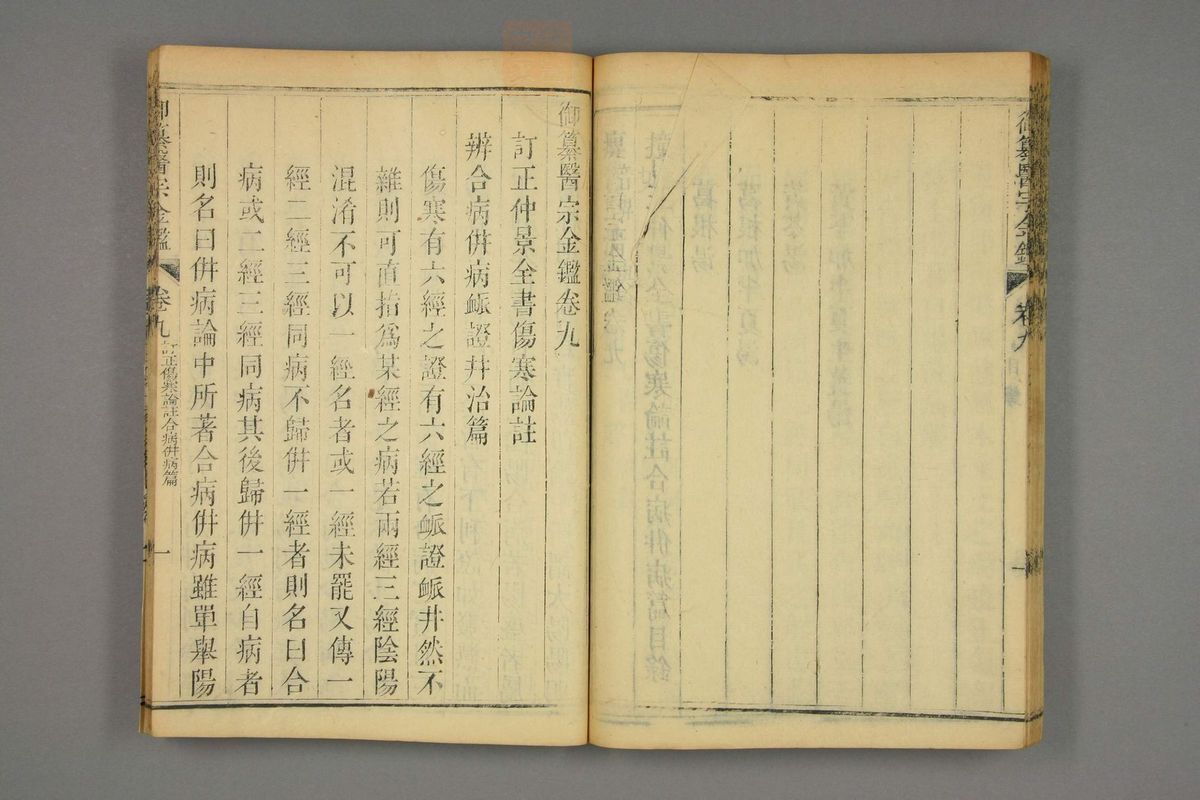 御纂醫宗金鑑
卷九
御纂醫宗金鑑卷九
訂正仲景全書傷寒論註
辨合病併病脈證并治篇
傷寒有六經之證有六經之脈證脈井然不
雜則可直指爲某經之病若兩經三經陰陽
混淆不可以一經名者或一經未罷又傳一
經二經三經同病不歸併一經者則名曰合
病或二經三經同病其後歸併一經自病者
則名曰併病論中所著合病併病雖單舉陽
御纂醫宗金鑑
卷九
訂正傷寒論註合病併病篇
一